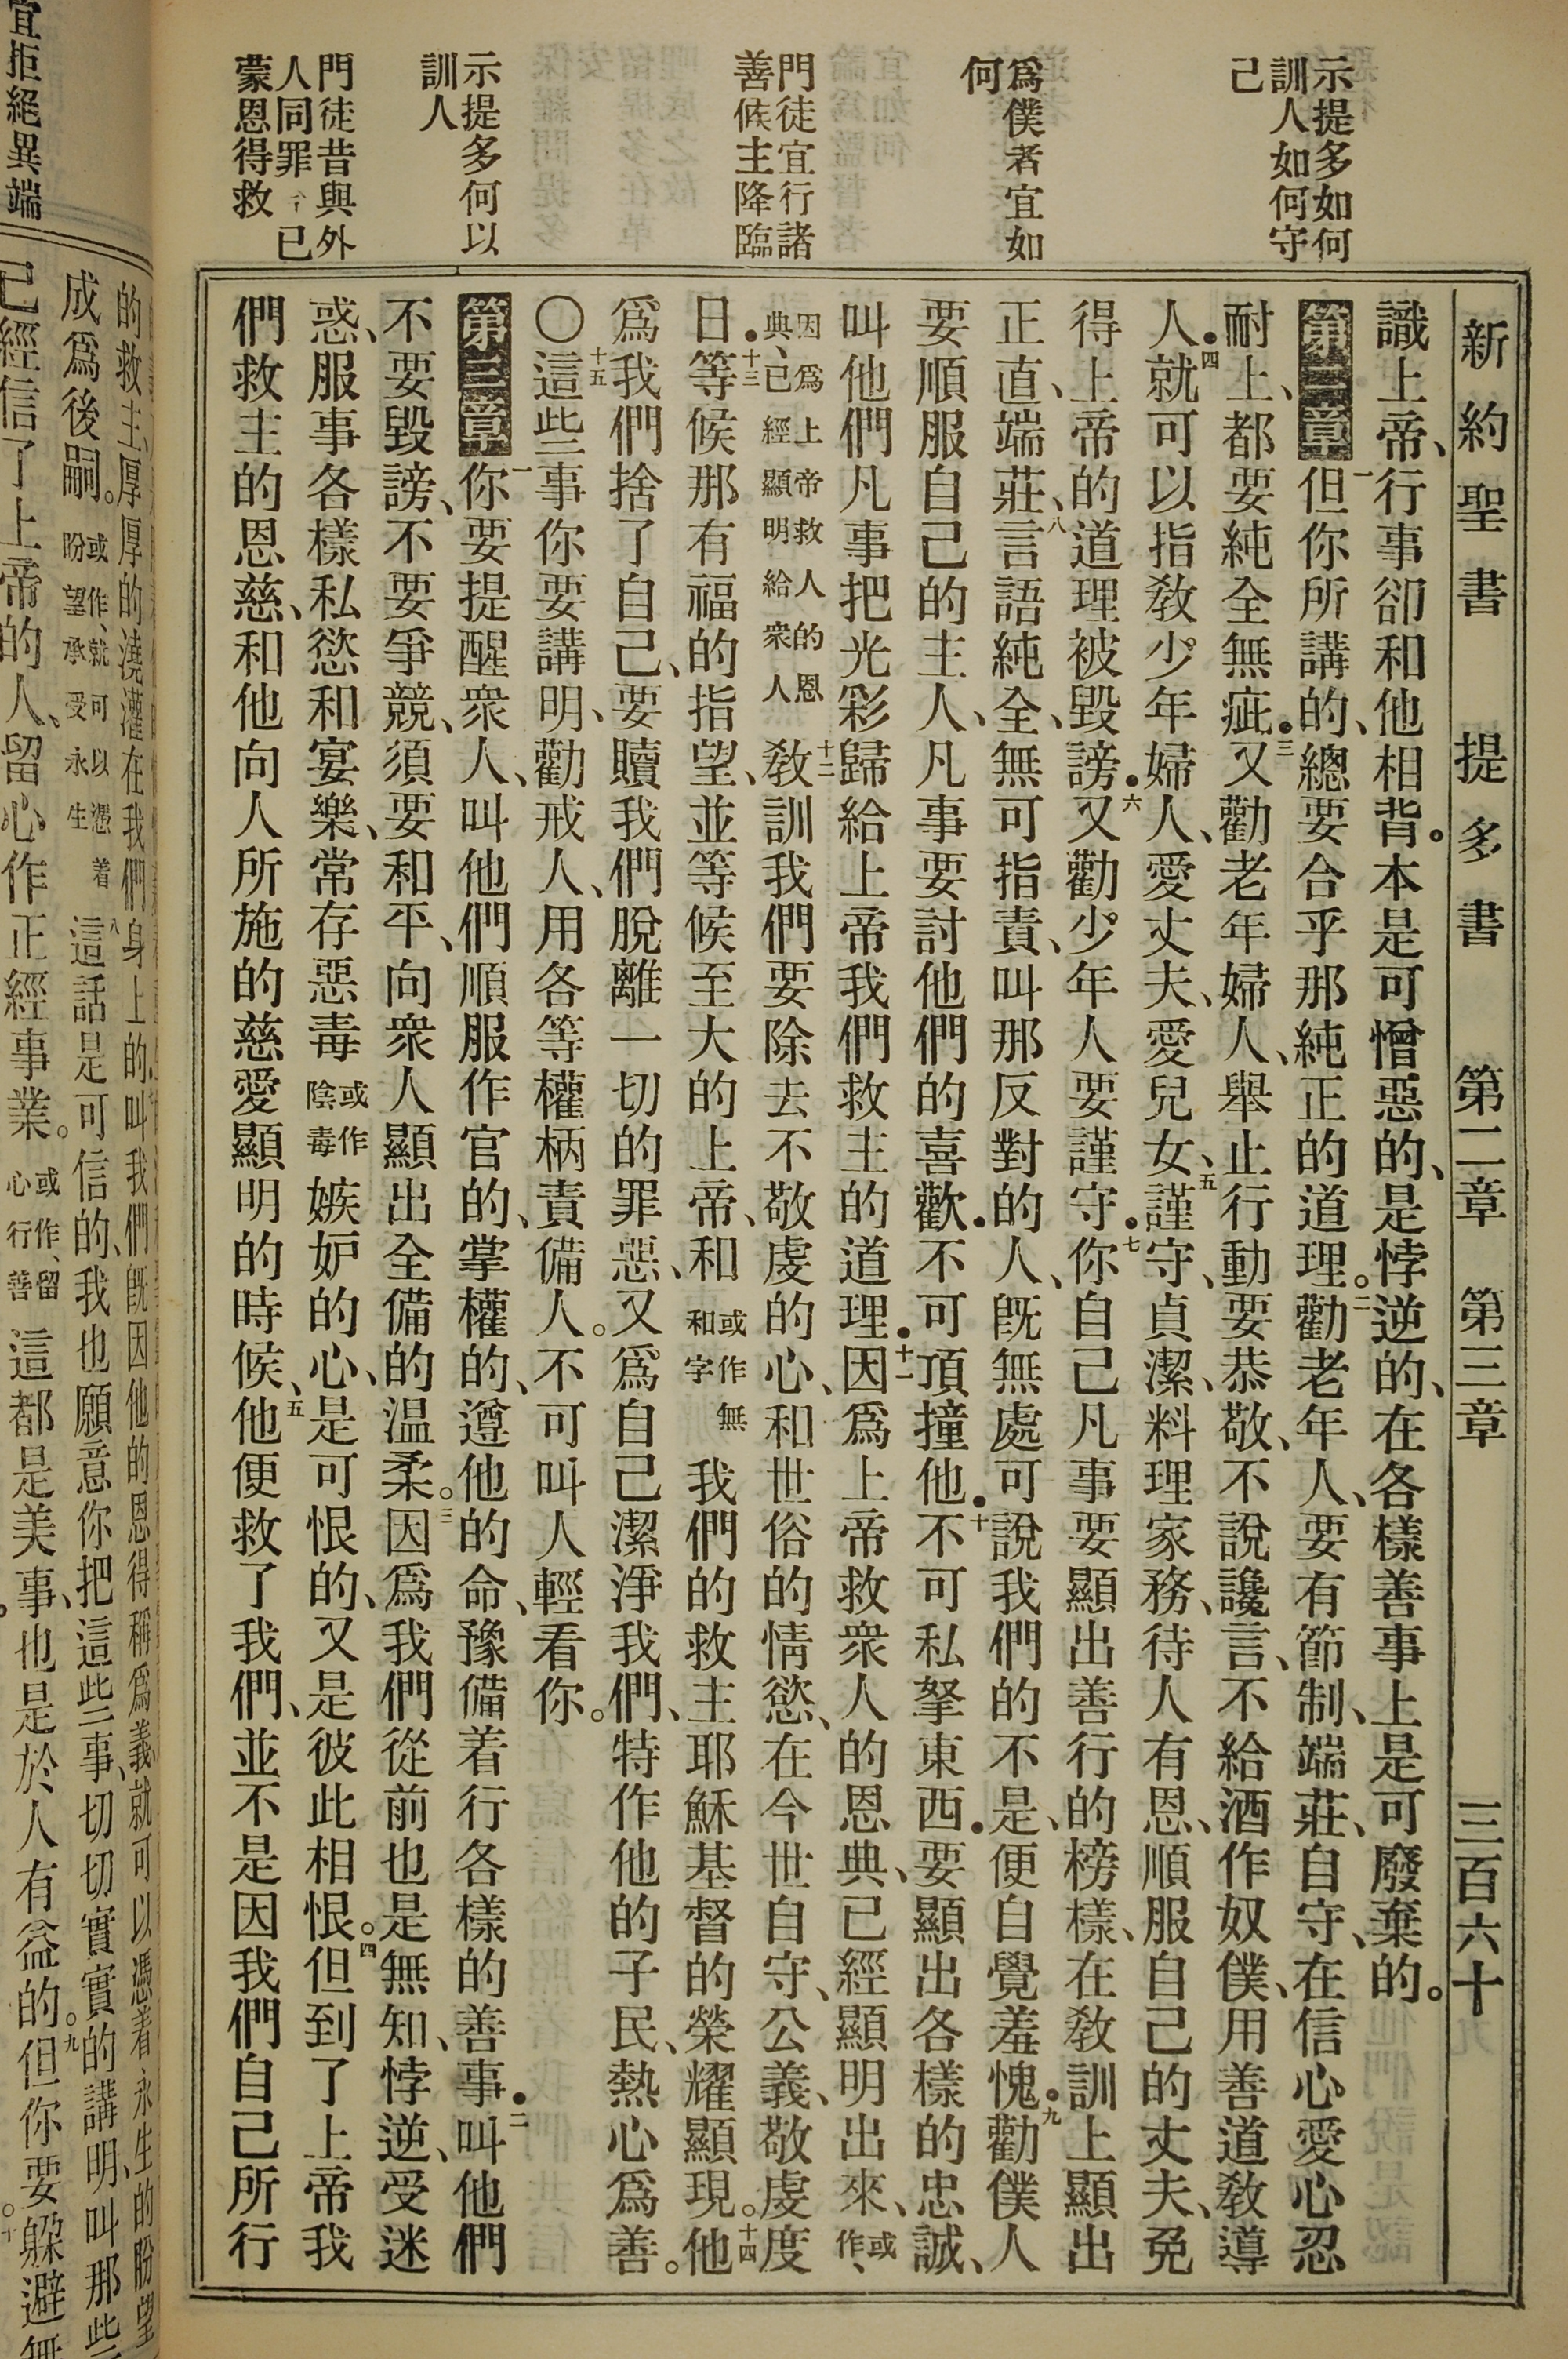 新約聖書 提多書 第二章 第三章 三百六十
示提多如何
訓人如何守
己
爲僕者宜如
何
門徒宜行諸
善候主降臨
示提多何以
訓人
門徒昔與外
人同罪今已
蒙恩得救
識上帝、行事卻和他相背。本是可憎惡的、是悖逆的、在各樣善事上是可廢棄的。
第二章 一但你所講的、總要合乎那純正的道理。二勸老年人、要有節制、端莊、自守、在信心愛心忍
耐上、都要純全無疵。三又勸老年婦人、舉止行動要恭敬、不說讒言、不給酒作奴僕、用善道敎導
人。四就可以指敎少年婦人、愛丈夫、愛兒女、五謹守、貞潔、料理家務、待人有恩、順服自己的丈夫、免
得上帝的道理被毀謗。六又勸少年人要謹守。七你自己凡事要顯出善行的榜樣、在敎訓上顯出
正直、端莊、八言語純全、無可指責、叫那反對的人、旣無處可說我們的不是、便自覺羞愧。九勸僕人
要順服自己的主人、凡事要討他們的喜歡。不可頂撞他。十不可私拏東西。要顯出各樣的忠誠、
叫他們凡事把光彩歸給上帝我們救主的道理。十一因爲上帝救衆人的恩典、已經顯明出來、或作、
因爲上帝救人的恩典、已經顯明給衆人 十二敎訓我們要除去不敬虔的心、和世俗的情慾、在今世自守、公義、敬虔度
日。十三等候那有福的指望、並等候至大的上帝、和或作和字無我們的救主耶穌基督的榮耀顯現。十四他
爲我們捨了自己、要贖我們脫離一切的罪惡、又爲自己潔淨我們、特作他的子民、熱心爲善。
〇十五這些事你要講明、勸戒人、用各等權柄責備人。不可叫人輕看你。
第三章 一你要提醒衆人、叫他們順服作官的、掌權的、遵他的命、豫備着行各樣的善事。二叫他們
不要毀謗、不要爭競、須要和平、向衆人顯出全備的温柔。三因爲我們從前也是無知、悖逆、受迷
惑、服事各樣私慾和宴樂、常存惡毒或作陰毒嫉妒的心、是可恨的、又是彼此相恨。四但到了上帝我
們救主的恩慈、和他向人所施的慈愛顯明的時候、五他便救了我們、並不是因我們自己所行
宜拒絕異端
的救主、厚厚的澆灌在我們身上的。叫我們旣因他的恩得稱爲義、就可以憑着永生的盼望
成爲後嗣。或作、就可以憑着盼望承受永生 八這話是可信的、我也願意你把這些事、切切實實的講明、叫那些
已經信了上帝的人、留心作正經事業。或作、留心行善 這都是美事、也是於人有益的。九但你要躱避無